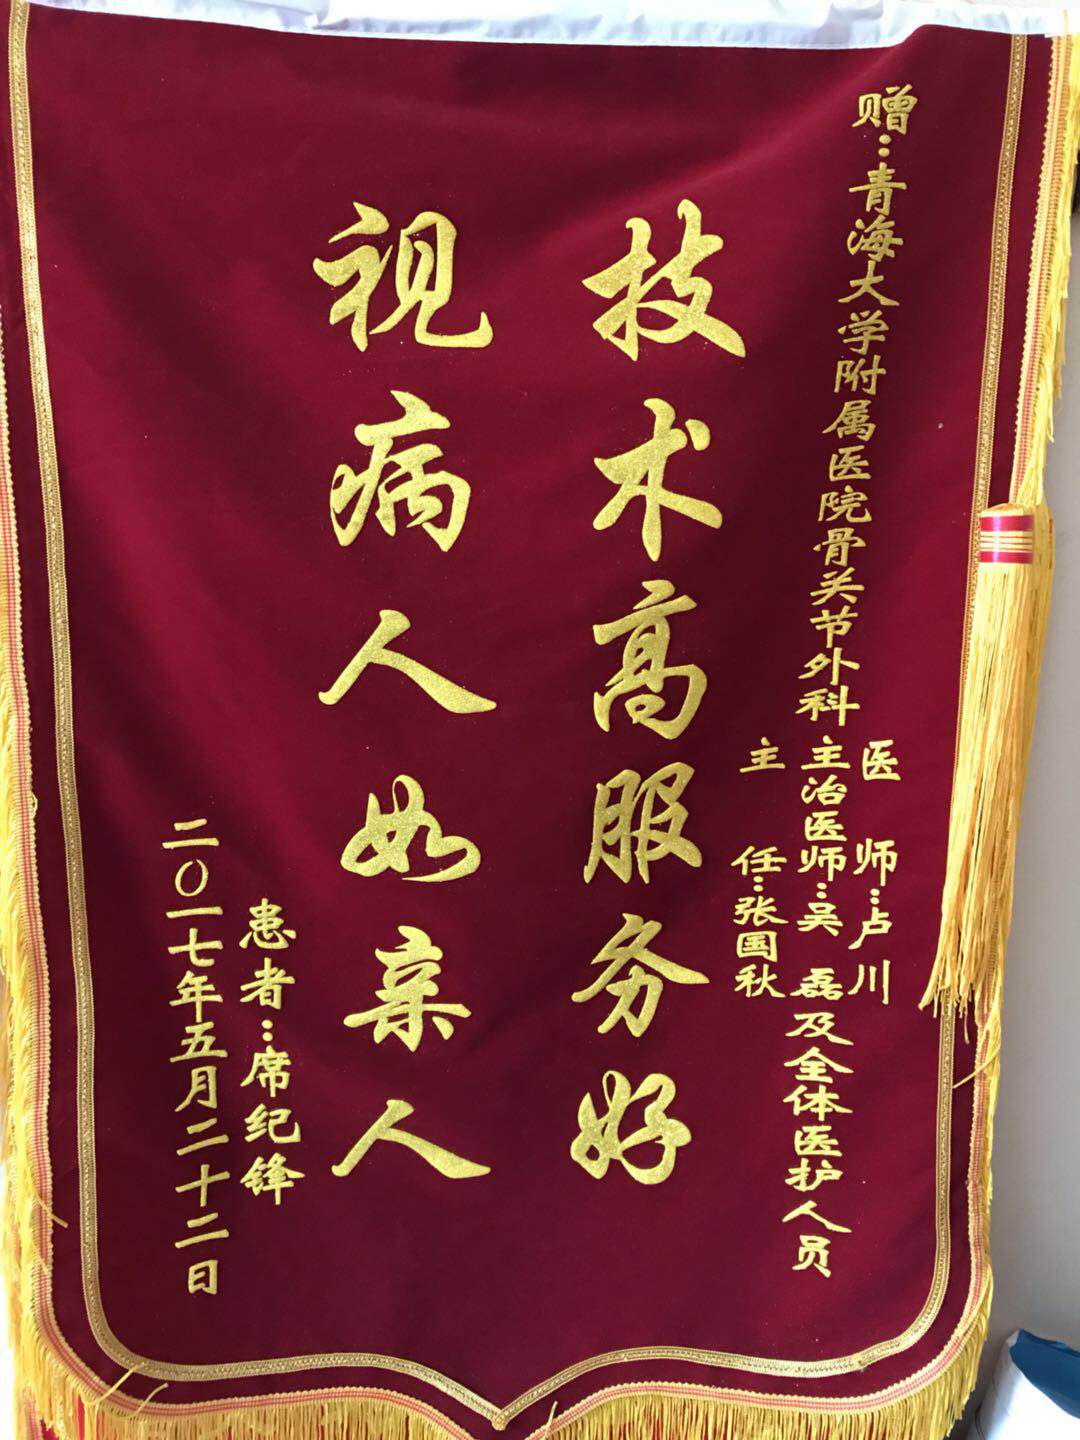 赠:青海大学附属医院骨关节外科
医师:卢川
主治医师:吴磊及全体医护人员
主任:张国秋
技术高服务好
视病人如亲人
患者:席纪锋
二〇一七年五月二十二日